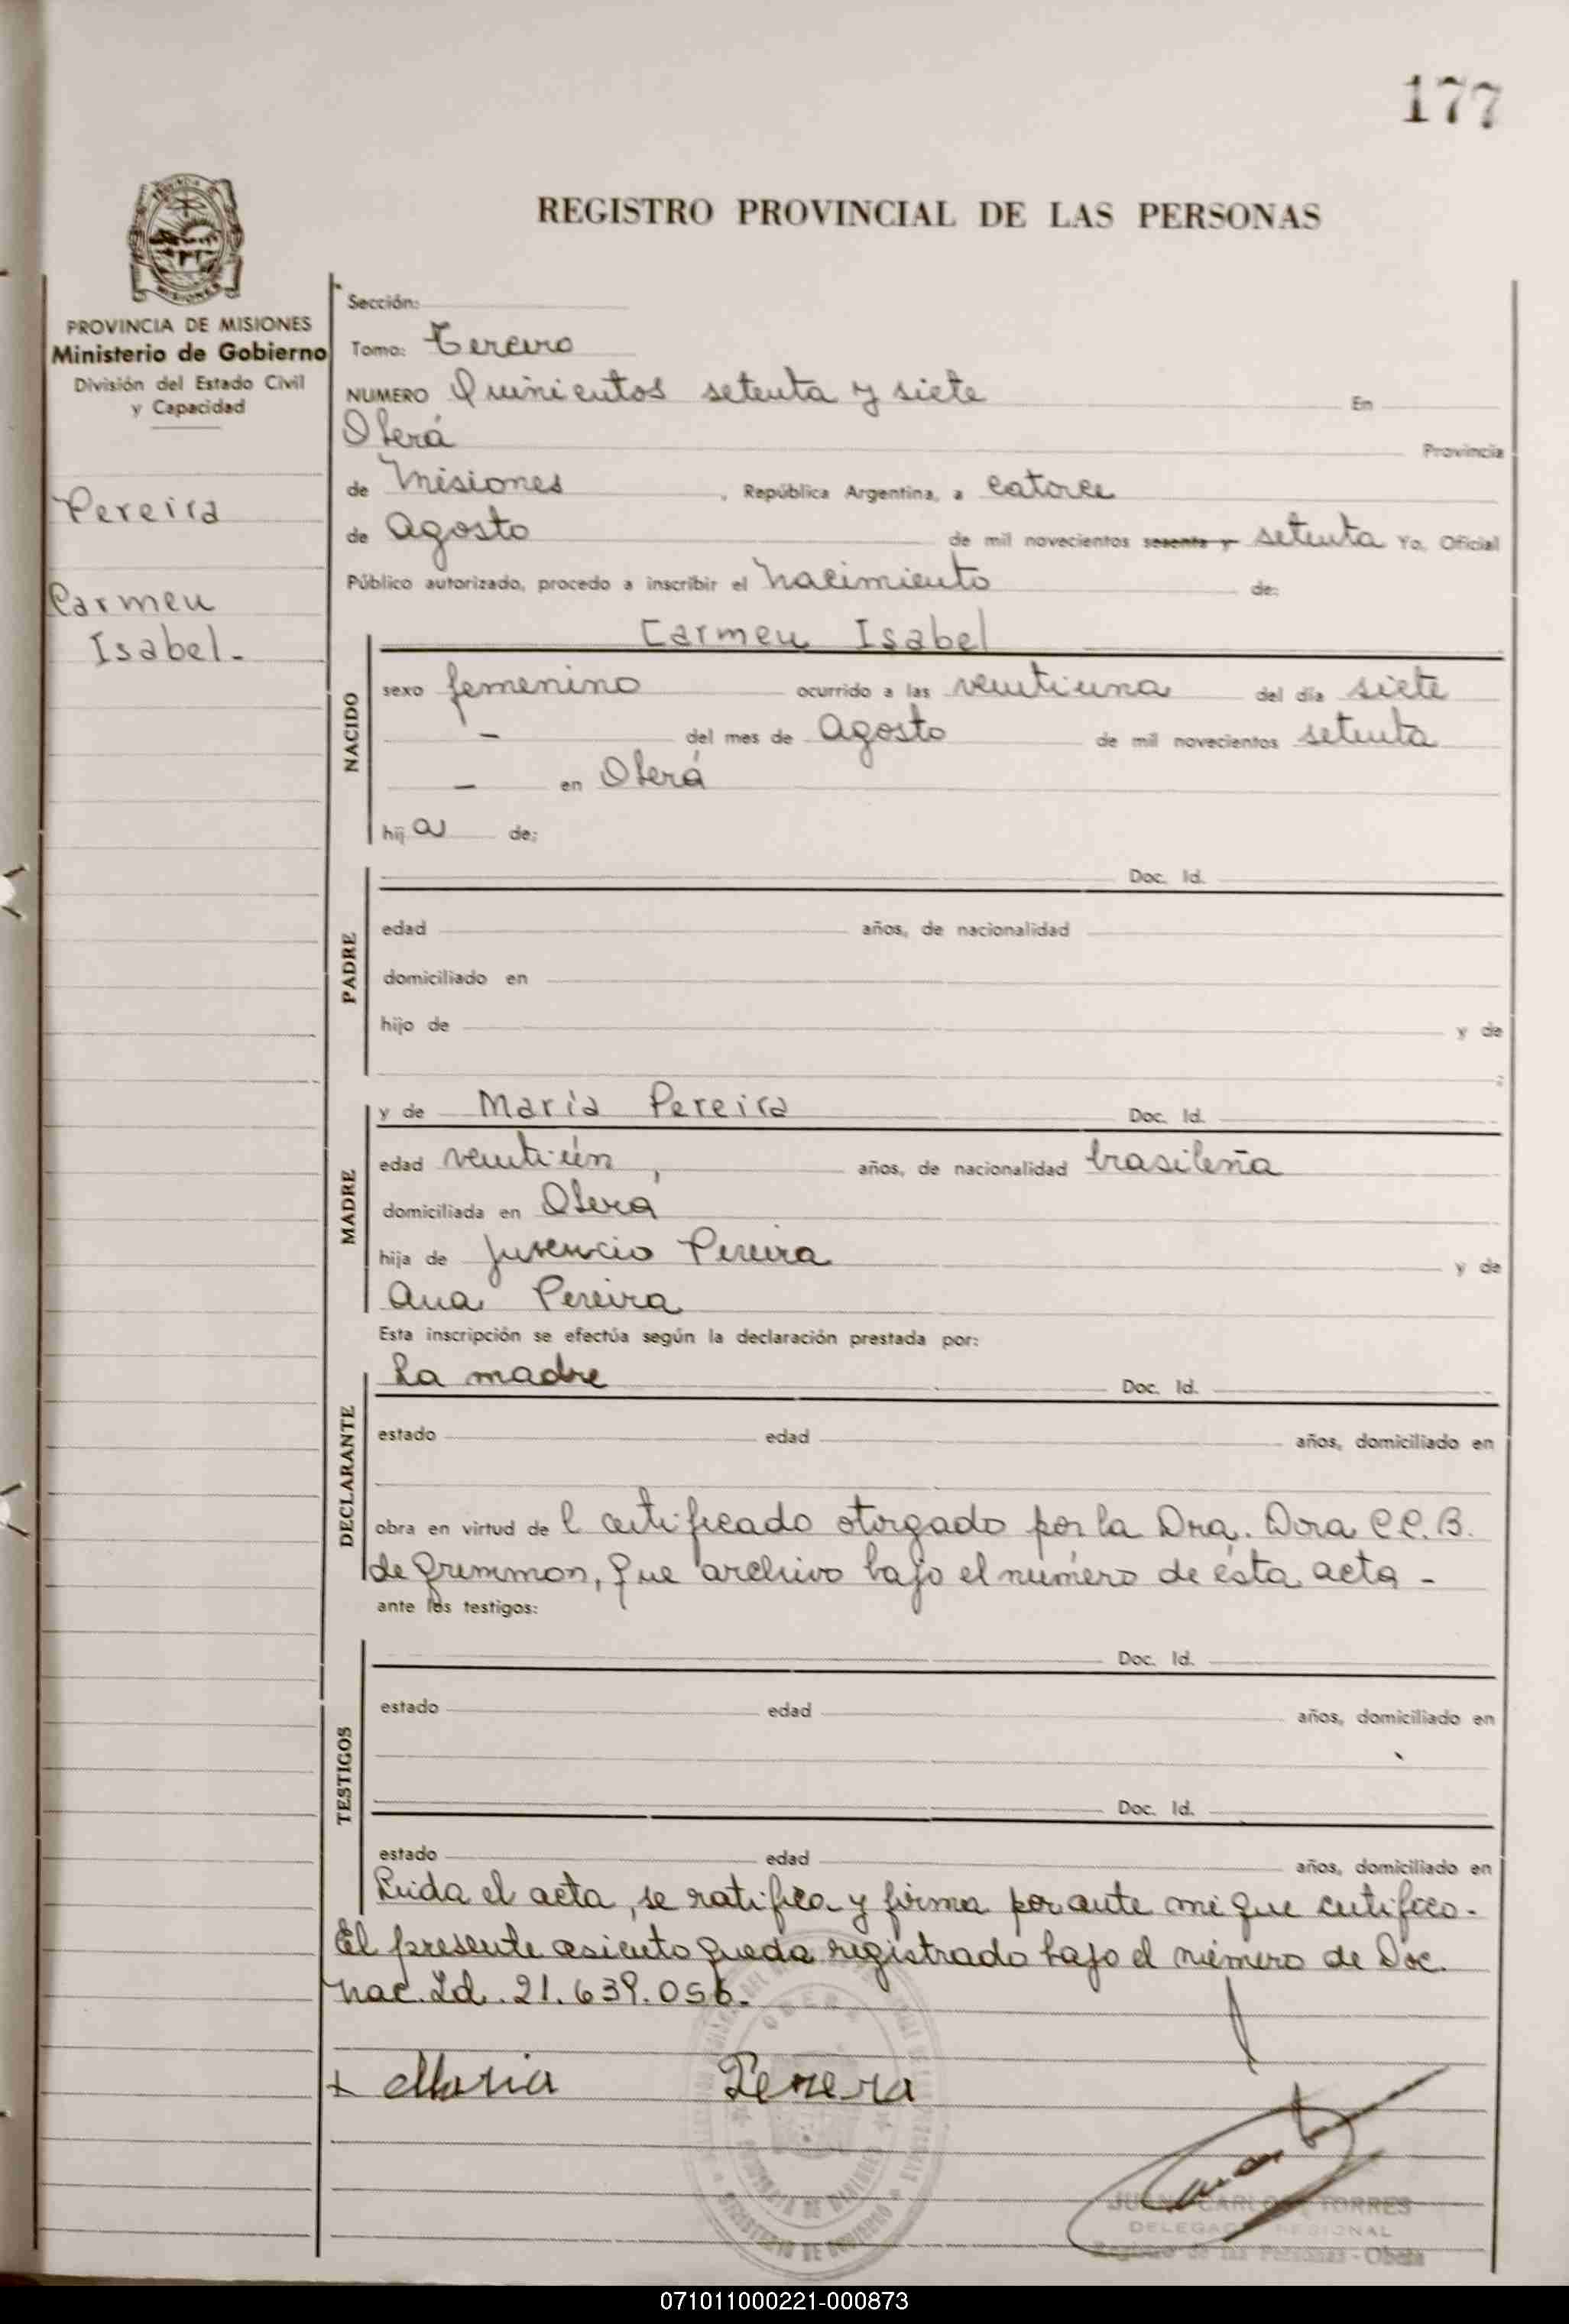 177
REGISTRO PROVINCIAL DE LAS PERSONAS
PROVINCIA DE MISIONES
Ministerio de Gobierno
División del Estado Civil
y Capacidad
Pereira
Carmen
Isabel.-
Sección:
Tomo: Tercero
NUMERO Quinientos setenta y siete En
Oberá Provincia
de Misiones , República Argentina, a catorce
de Agosto de mil novecientos sesenta y setenta Yo, Oficial
Público autorizado, procedo a inscribir el nacimiento de:
Carmen Isabel
NACIDO
sexo femenino ocurrido a las veintiuna del día siete
- del mes de Agosto de mil novecientos setenta
- en Oberá
hij a de:
PADRE
Doc. Id.
edad años, de nacionalidad
domiciliado en
hijo de y de
;
MADRE
y de María Pereira Doc. Id.
edad veintiún, años, de nacionalidad brasileña
domiciliada en Oberá
hija de Juvencio Pereira y de
Ana Pereira
Esta inscripción se efectúa según la declaración prestada por:
DECLARANTE
La madre Doc. Id.
estado edad años, domiciliado en
obra en virtud de l certificado otorgado por la Dra. Dora C.C.B.
de , que archivo bajo el número de ésta acta -
ante los testigos:
TESTIGOS
Doc. Id.
estado edad años, domiciliado en
Doc. Id.
estado edad años, domiciliado en
Leida el acta, se ratifica y firma por ante mi que certifico.-
El presente asiento queda registrado bajo el número de Doc.
Nac. Id. 21.639.056.-
+ Maria Perera
OBERA
PROVINCIA DE MISIONES
MINISTERIO DE GOBIERNO
JUAN CARLOS TORRES
DELEGADO REGIONAL
Registro de las Personas - Oberá
071011000221-000873